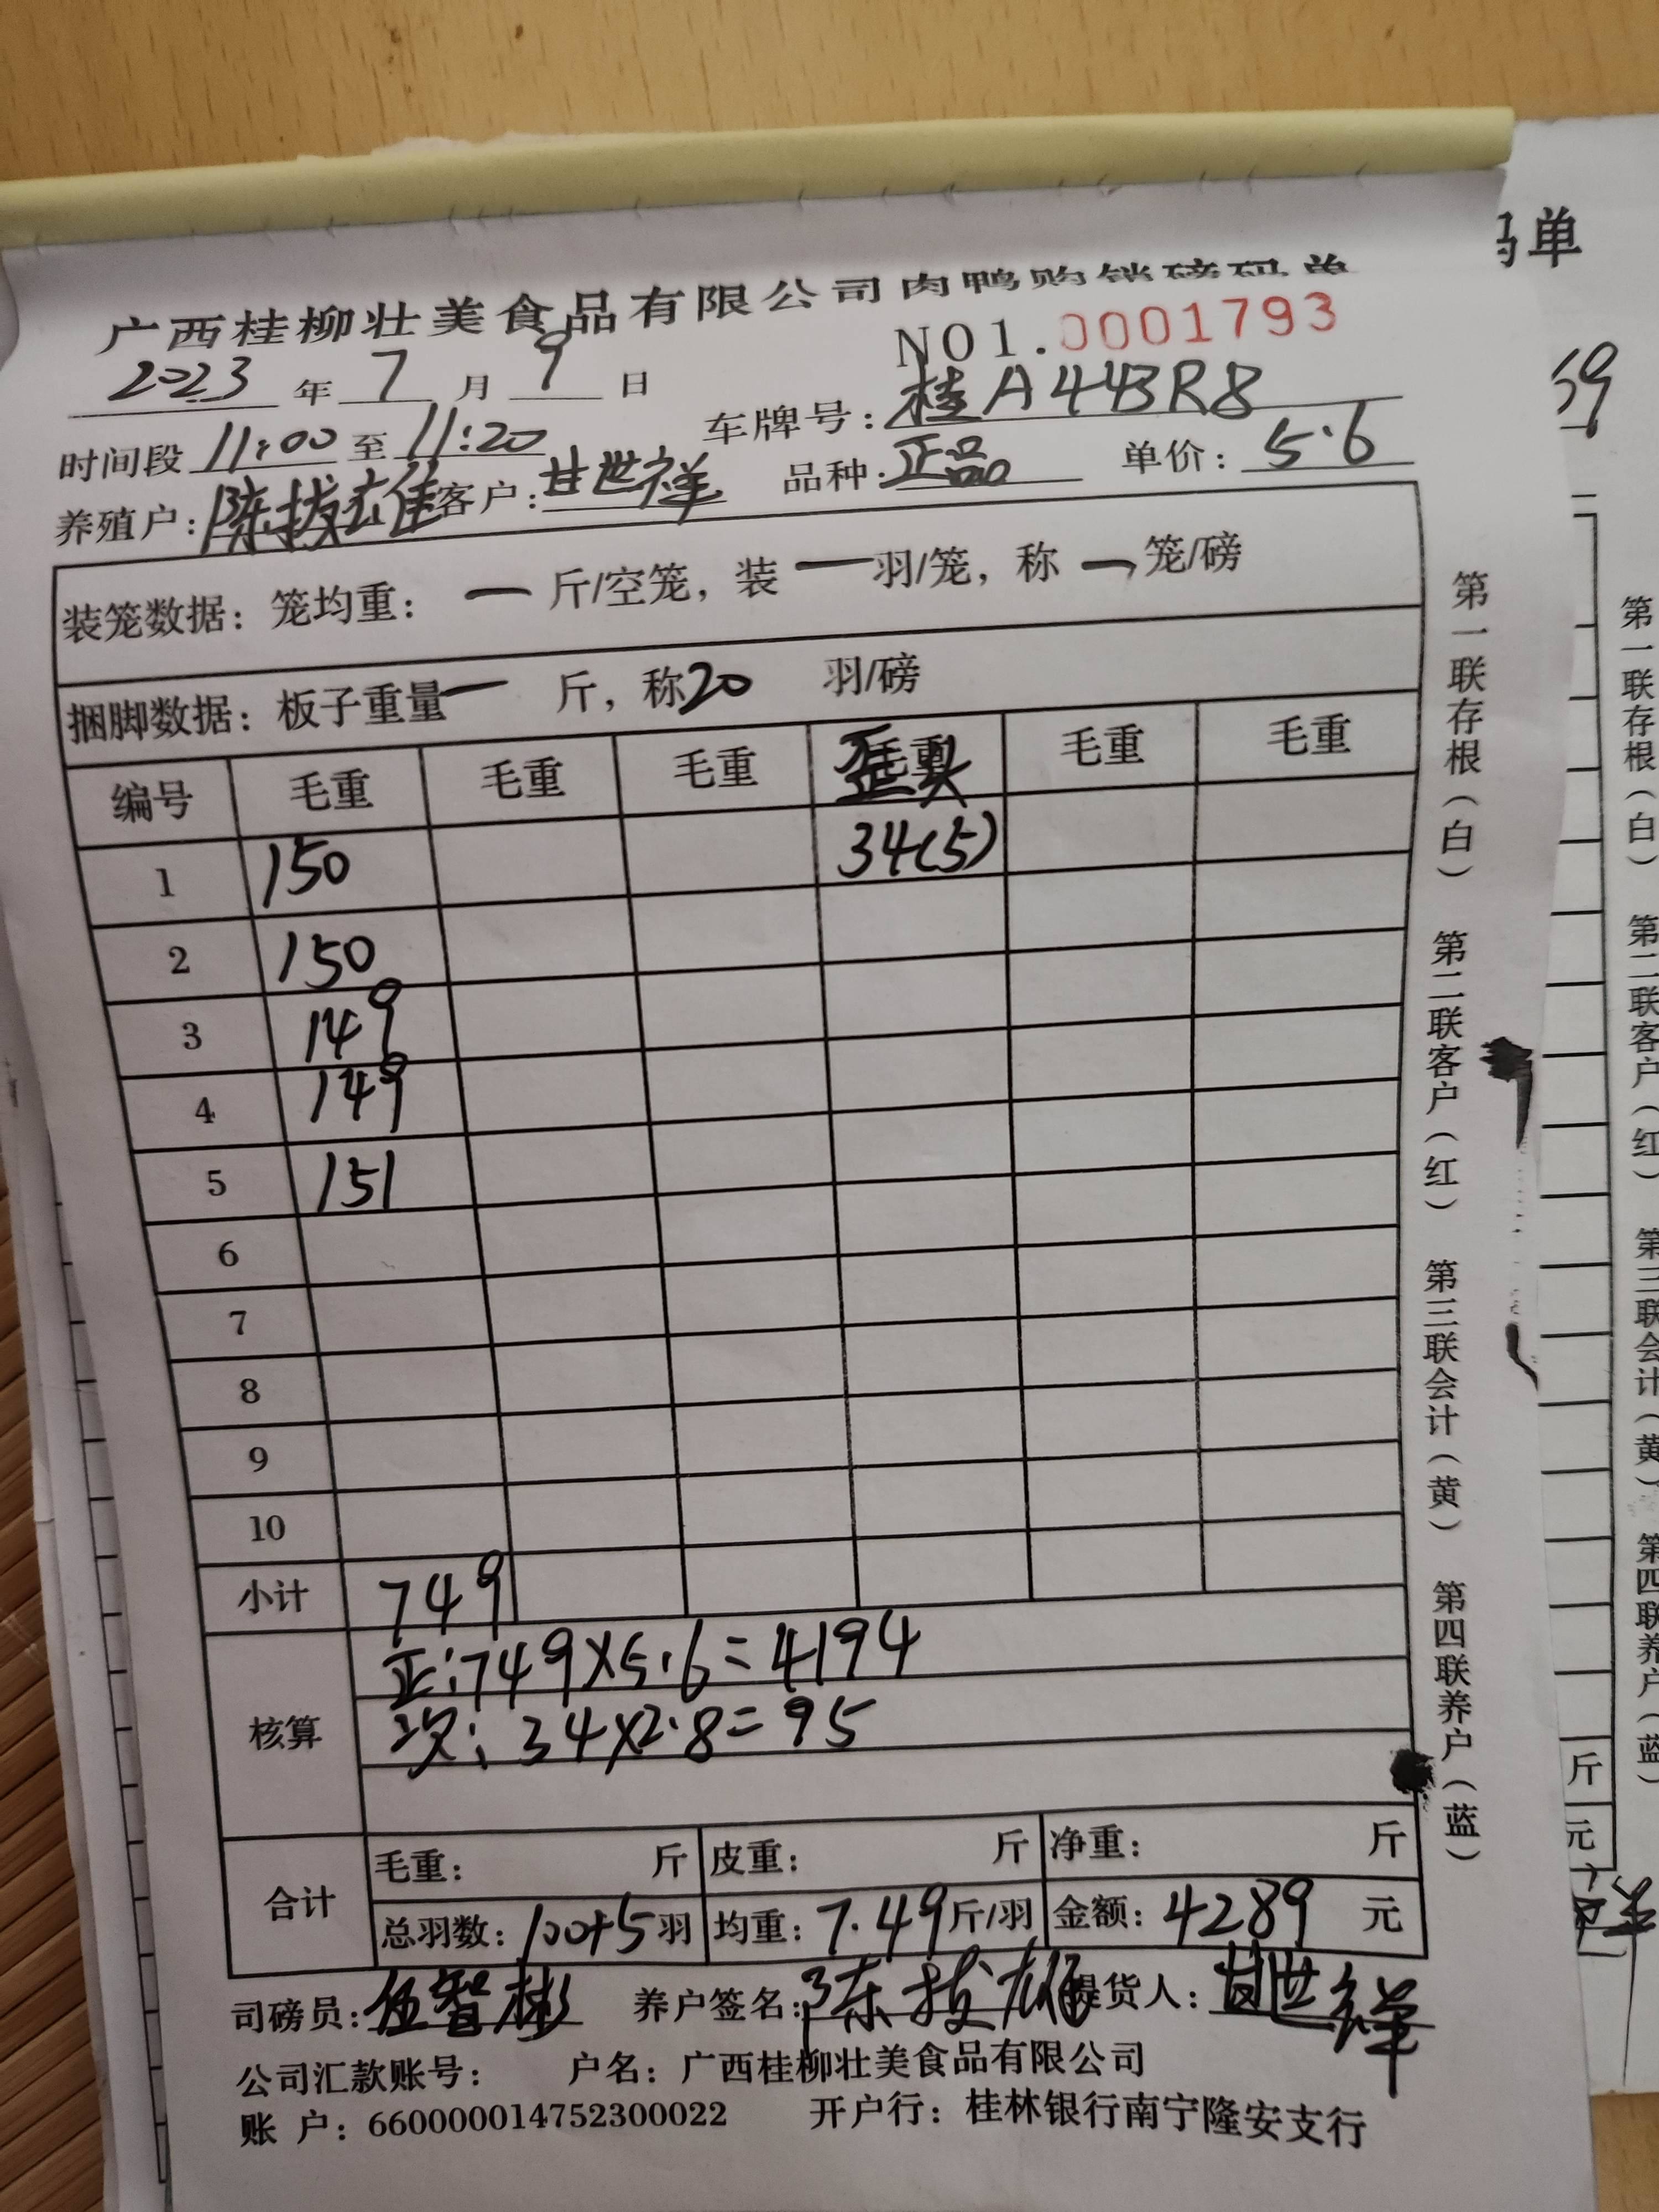 广西桂柳壮美食品有限公司肉鸭购销磅码单
NO1.0001793
2023年7月9日
车牌号:桂A443R8
时间段11:00至11:20
品种:正品 单价:5.6
养殖户:陈拔雄客户:甘世祥
装笼数据:笼均重:一斤/空笼,装一羽/笼,称一笼/磅
捆脚数据:板子重量一斤,称20羽/磅
编号 毛重 毛重 毛重 歪头 毛重 毛重
1 150 34(5)
2 150
3 149
4 149
5 151
6
7
8
9
10
小计 749
核算 正:749×5.6=4194
次:34×2.8=95
合计 毛重: 斤 皮重: 斤 净重: 斤
总羽数:100+5羽 均重:7.49斤/羽 金额:4289元
司磅员:伍智彬 养户签名:陈拔雄 提货人:甘世祥
公司汇款账号: 户名:广西桂柳壮美食品有限公司
账 户:660000014752300022 开户行:桂林银行南宁隆安支行
第一联存根(白) 第二联客户(红) 第三联会计(黄) 第四联养户(蓝)
码单
第一联存根(白) 第二联客户(红) 第三联会计(黄) 第四联养户(蓝)
斤
元